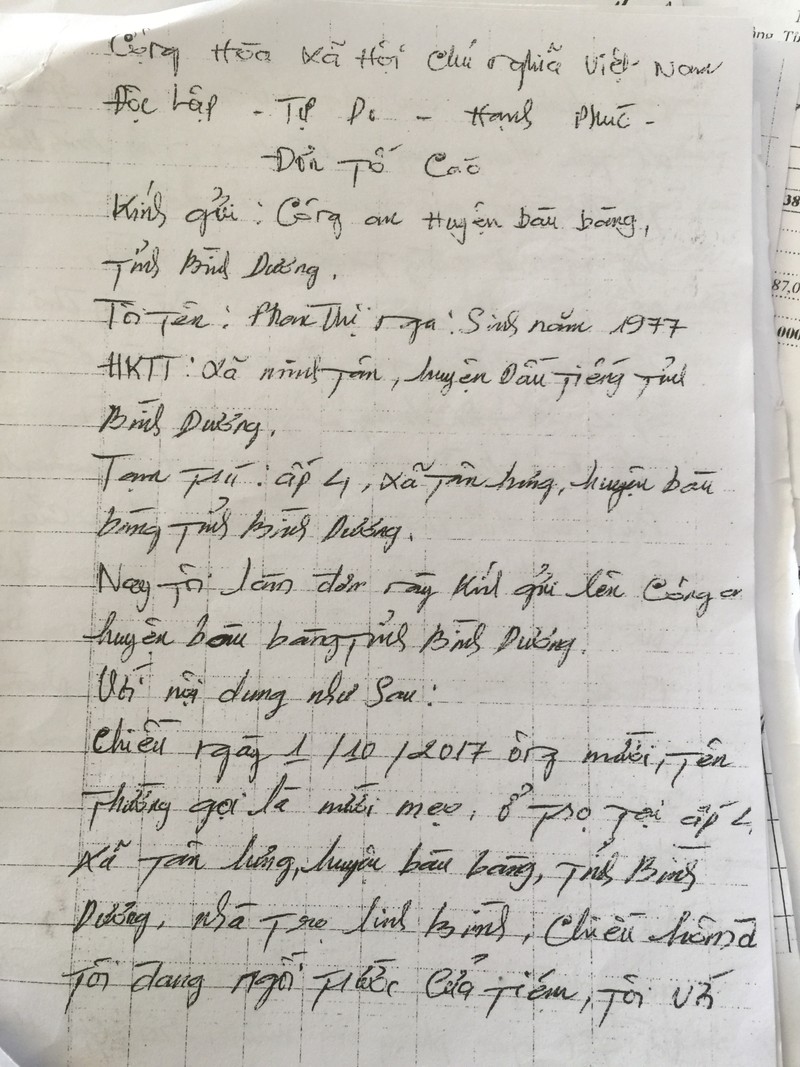 Cộng Hòa xã Hội chủ nghĩa việt Nam
Độc Lập - Tự Do - Hạnh Phúc -
Đơn Tố Cáo
Kính gửi : Công an Huyện bàu bàng,
Tỉnh Bình Dương.
Tôi Tên : Phan Thị nga : Sinh năm 1977
HKTT : xã minh Tân, huyện Dầu Tiếng Tỉnh
Bình Dương.
Tạm Trú : ấp 4, xã Tân hưng, huyện bàu
bàng Tỉnh Bình Dương.
Nay Tôi làm đơn này kính gửi lên Công an
huyện bàu bàng Tỉnh Bình Dương.
Với nội dung như Sau :
Chiều ngày 1/10/2017 ông mười, Tên
Thường gọi là mười mẹo, ở Trọ Tại ấp 4,
xã Tân hưng, huyện bàu bàng, Tỉnh Bình
Dương, nhà Trọ linh bình, Chiều hôm đó
Tôi đang ngồi Trước Cửa Tiệm, Tôi với
38
87,0
000